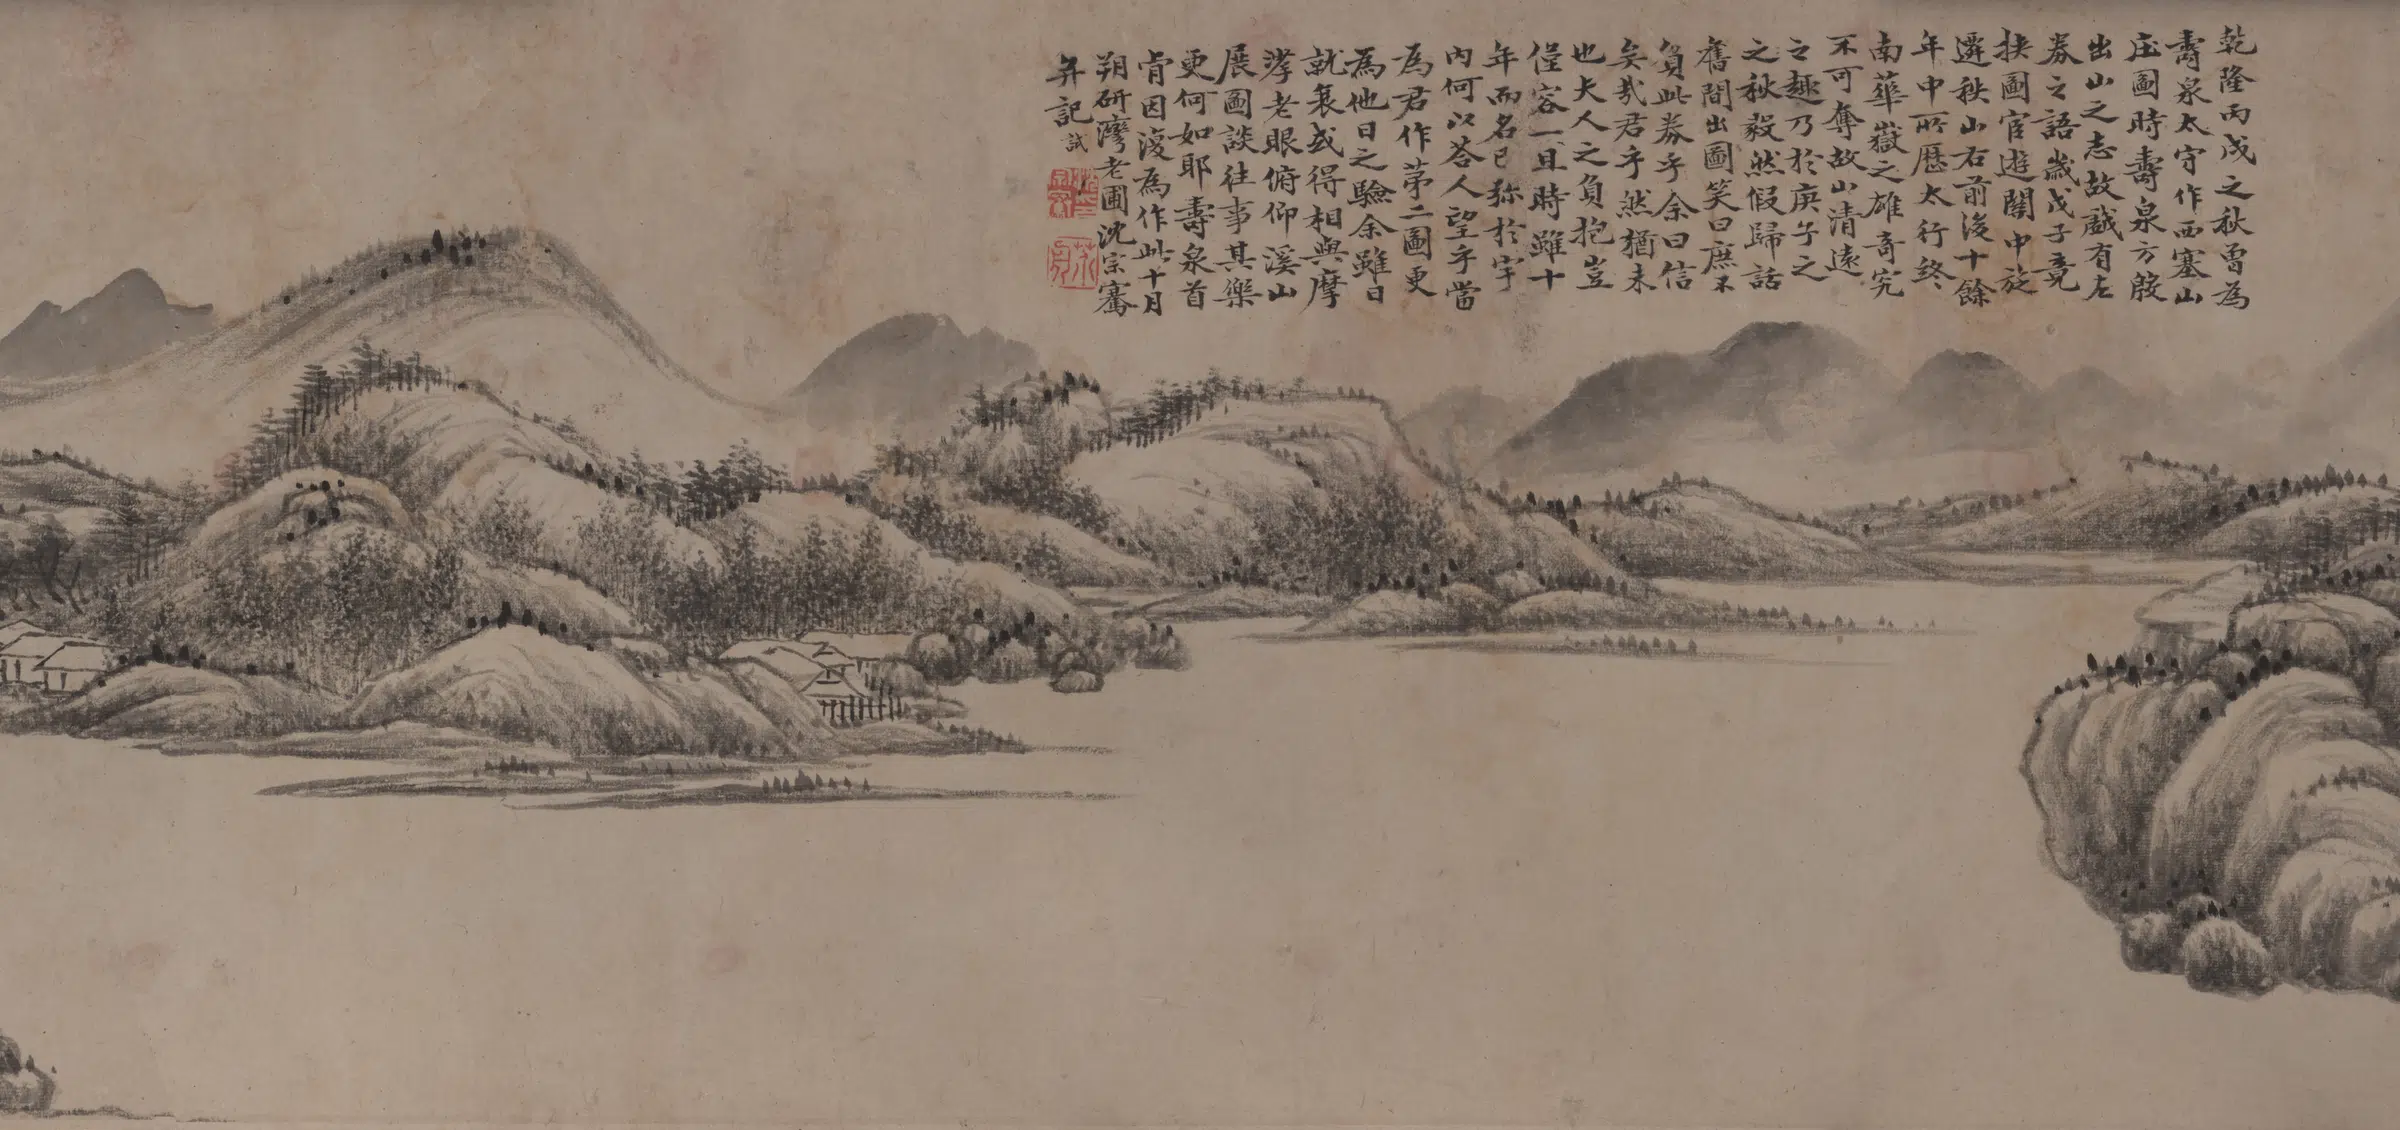 乾隆丙戌之秋曽為
壽泉太守作西塞山
庄圖時壽泉方殷
出山之志故戲有左
券之語歲戊子竟
挾圖宦遊關中旋
遷秩山右前後十餘
年中所歷太行終
南華嶽之雄奇究
不可奪故山清遠
之趣乃於庚子之
之秋毅然假歸話
舊間出圖笑曰庶不
負此券乎余曰信
矣哉君乎然猶未
也夫人之負抱豈
僅容一旦時雖十
年而名已弥於宇
內何以荅人望乎當
為君作第二圖更
為他日之驗余雖日
就衰或得相與摩
挲老眼俯仰溪山
展圖談往事其樂
更何如耶壽泉首
肯因復為作此十月
朔研灣老圃沈宗騫
并記 試